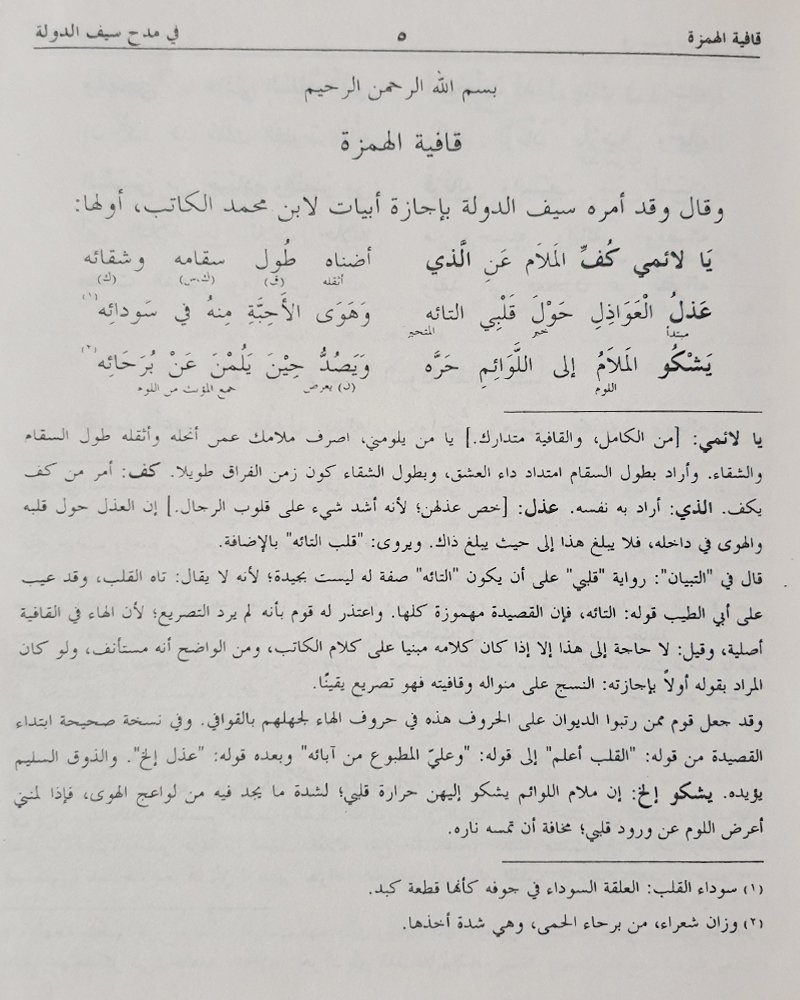 قافية الهمزة ٥ في مدح سيف الدولة
بسم الله الرحمن الرحيم
قافية الهمزة
وقال وقد أمره سيف الدولة بإجازة أبيات لابن محمد الكاتب، أولها:
يَا لائمي كُفِّ المَلاَم عَنِ الَّذي أضناه طُول سقامه وشقائه
أثقله (ف) (ك،س) (ك)
عَذلُ الْعَوَاذِلِ حَوْلَ قَلْبِي التائه وَهَوَى الأَحِبَّةِ مِنهُ في سَودائه (١)
مبتدأ خبر المتحير
يَشْكُو المَلاَمُ إلى اللَّوَائِمِ حَرَّه وَيَصُدُّ حِيْنَ يَلُمْنَ عَنْ بُرَحَائِه (٢)
اللوم (ن) يعرض جمع المؤنث من اللوم
يا لائمي: [من الكامل، والقافية متدارك.] يا من يلومني، اصرف ملامك عمن أنحله وأثقله طول السقام
والشقاء. وأراد بطول السقام امتداد داء العشق، وبطول الشقاء كون زمن الفراق طويلا. كف: أمر من كف
يكف. الذي: أراد به نفسه. عذل: [خص عذلهن؛ لأنه أشد شيء على قلوب الرجال.] إن العذل حول قلبه
والهوى في داخله، فلا يبلغ هذا إلى حيث يبلغ ذاك. ويروى: "قلب التائه" بالإضافة.
قال في "التبيان": رواية "قلبي" على أن يكون "التائه" صفة له ليست بجيدة؛ لأنه لا يقال: تاه القلب، وقد عيب
على أبي الطيب قوله: التائه، فإن القصيدة مهموزة كلها. واعتذر له قوم بأنه لم يرد التصريع؛ لأن الهاء في القافية
أصلية، وقيل: لا حاجة إلى هذا إلا إذا كان كلامه مبنيا على كلام الكاتب، ومن الواضح أنه مستأنف، ولو كان
المراد بقوله أولاً بإجازته: النسج على منواله وقافيته فهو تصريع يقينًا.
وقد جعل قوم ممن رتبوا الديوان على الحروف هذه في حروف الهاء لجهلهم بالقوافي. وفي نسخة صحيحة ابتداء
القصيدة من قوله: "القلب أعلم" إلى قوله: "وعليّ المطبوع من آبائه" وبعده قوله: "عذل إلخ". والذوق السليم
يؤيده. يشكو إلخ: إن ملام اللوائم يشكو إليهن حرارة قلبي؛ لشدة ما يجد فيه من لواعج الهوى، فإذا لمنني
أعرض اللوم عن ورود قلبي؛ مخافة أن تمسه ناره.
(١) سوداء القلب: العلقة السوداء في جوفه كأنها قطعة كبد.
(٢) وزان شعراء، من برحاء الحمى، وهي شدة أخذها.